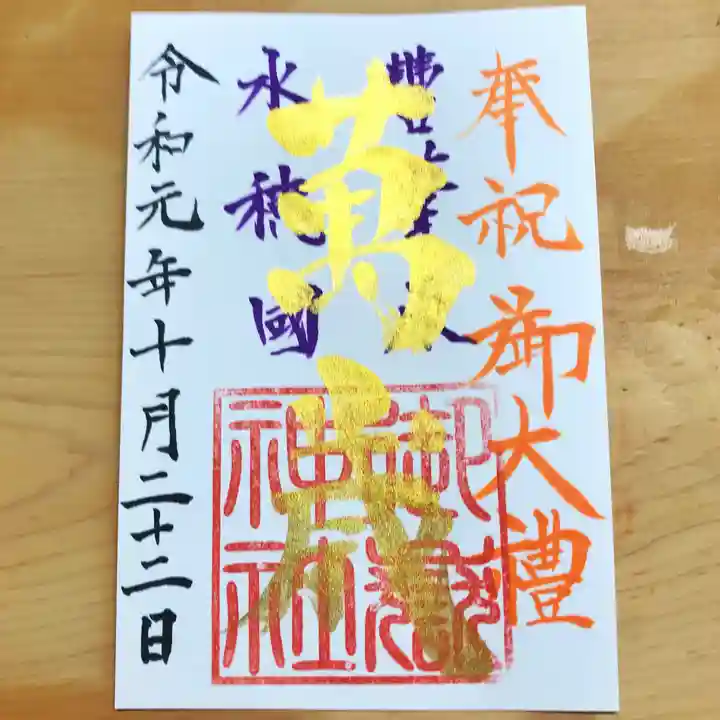 奉祝御大禮
萬歳
水穂國
御嶽
神社
令和元年十月二十二日